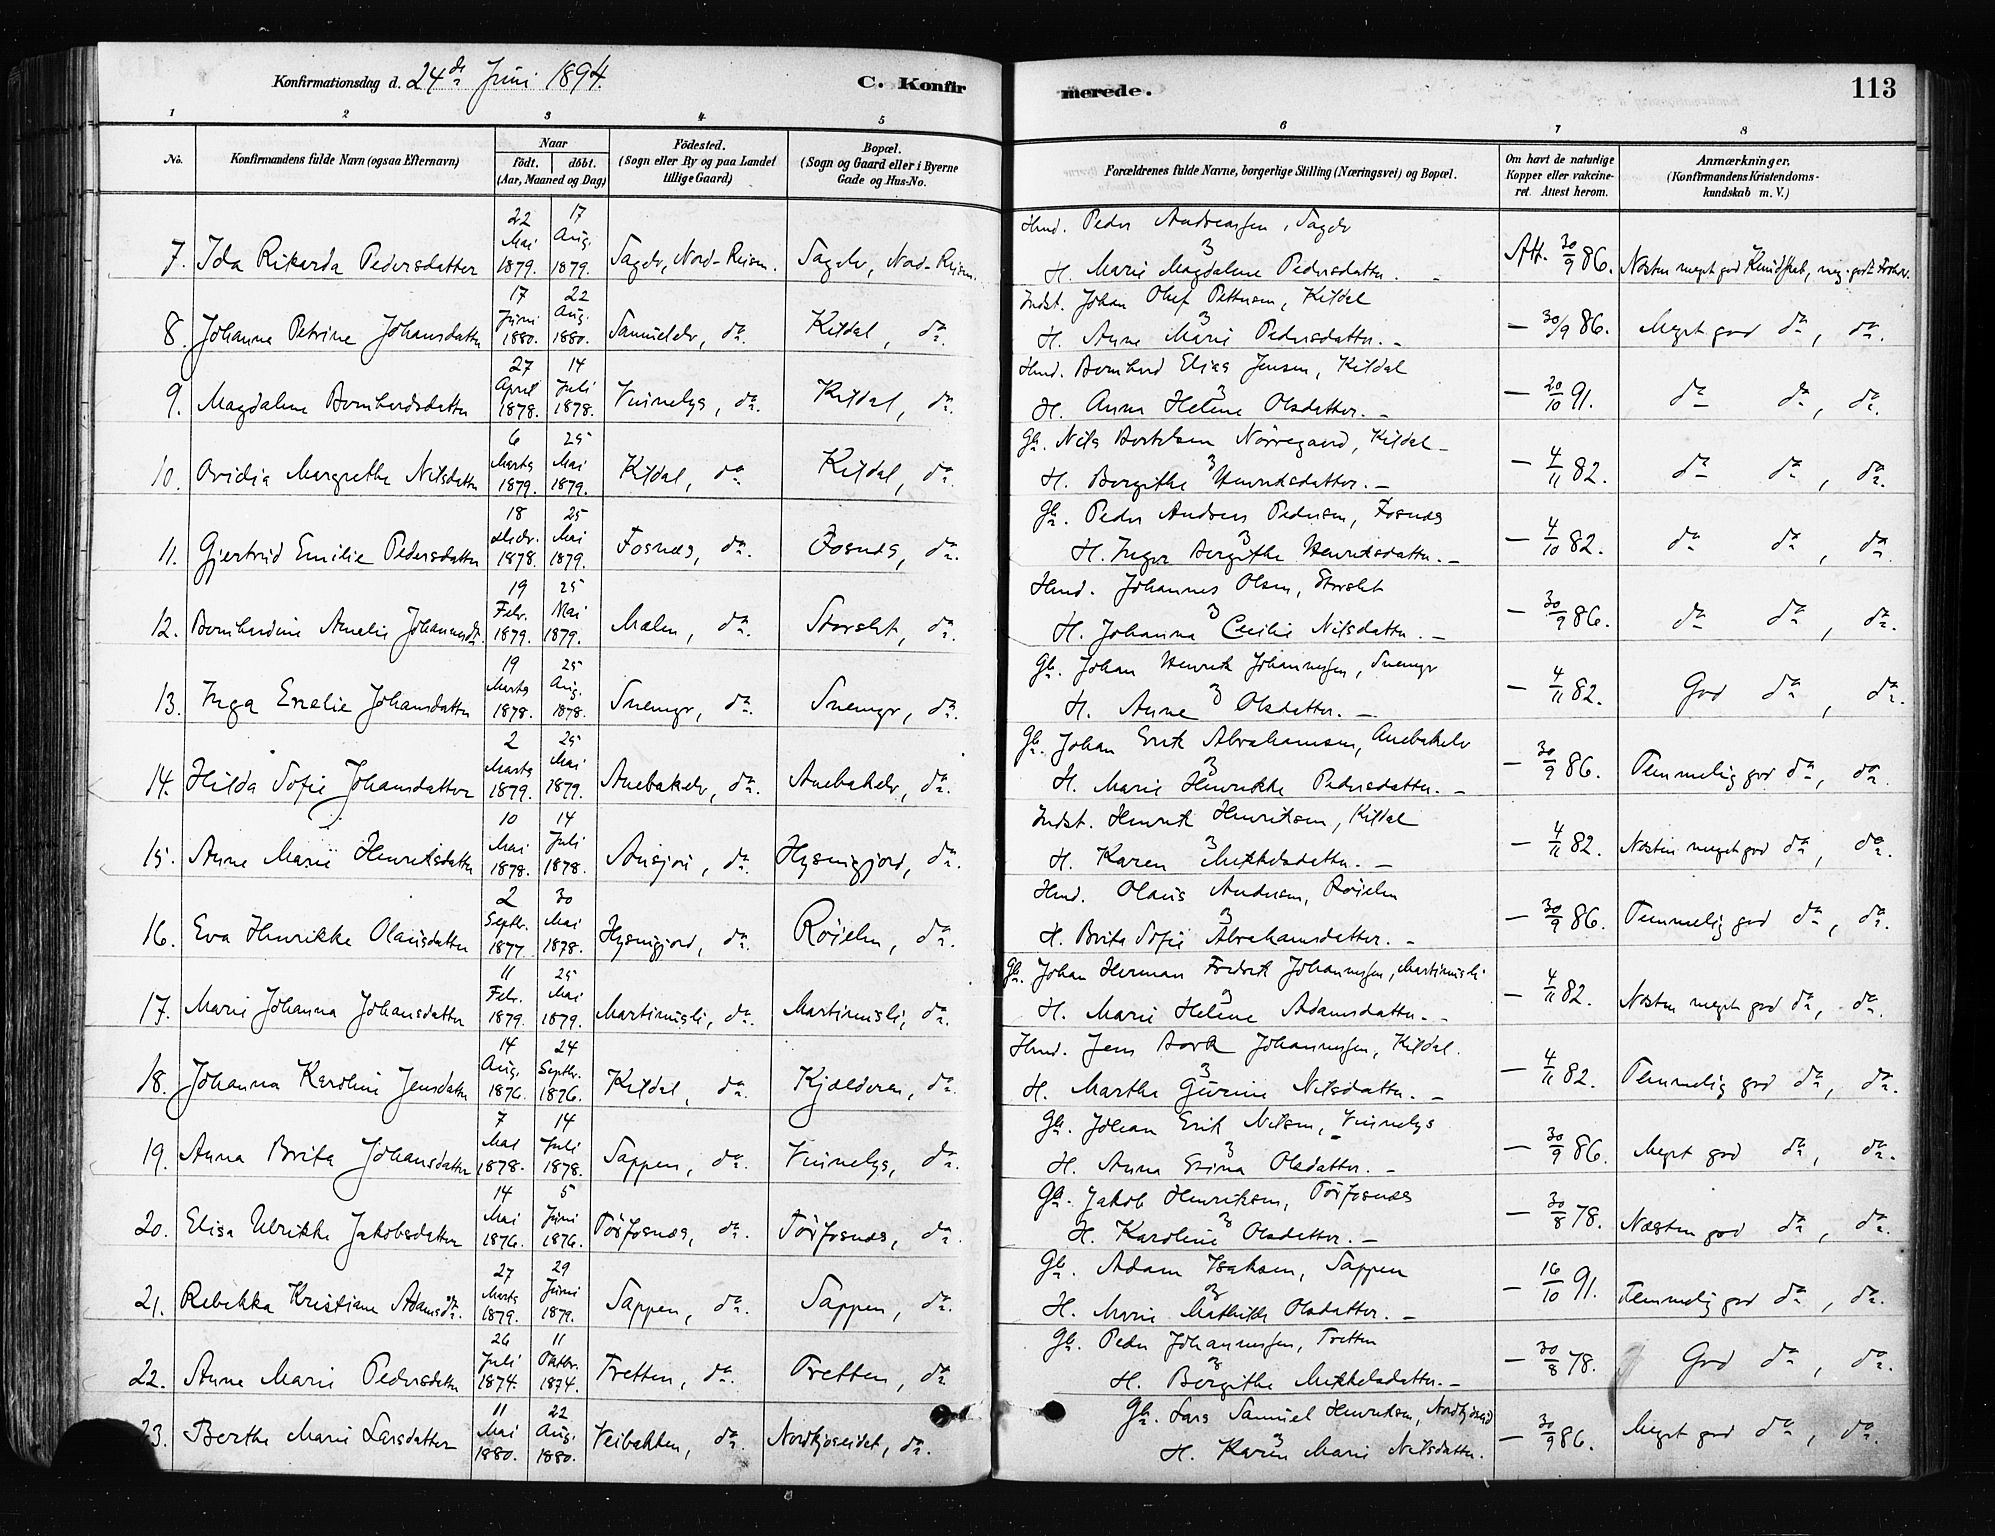 Konfirmationsdag d. 24de Juni 1894.
C. Konfirmerede.
113
1 2 3 4 5 6 7 8
No.
Konfirmandens fulde Navn (ogsaa Efternavn)
Naar
født. døbt.
(Aar, Maaned og Dag)
Fødested.
(Sogn eller By og paa Landet
tillige Gaard)
Bopæl.
(Sogn og Gaard eller i Byerne
Gade og Hus-No.
Forældrenes fulde Navne, borgerlige Stilling (Næringsvei) og Bopæl.
Om havt de naturlige
Kopper eller vakcine-
ret. Attest herom.
Anmærkninger.
(Konfirmandens Kristendoms-
kundskab m. V.)
7. Ida Rikarda Pedersdatter 22 Mai 1879. 17 Aug. 1879. Sagelv, Nord-Reisen. Sagelv, Nord-Reisen. Peder Andreassen, Sagelv
H. Marie Magdalene Pedersdatter. - Att. 30/9 86. Næsten meget god Kundskab,
8. Johanna Petrine Johansdatter 17 Juni 1880. 22 Aug. 1880. Samuelelv, do. Kildal, do. Indst. Johan Olaf Pettersen, Kildal
H. Anne Marie Pedersdatter. - - 30/9 86. Meget god do, do.
9. Magdalene Bernhardsdatter 27 April 1878. 14 Juli 1878. Vinnelys, do. Kildal, do. Bernhard Elias Jensen, Kildal
H. Anna Helene Olsdatter. - - 20/10 91. do do, do.
10. Ovidia Margrethe Nilsdatter 6 Marts 1879. 25 Mai 1879. Kildal, do Kildal, do. Gb. Nils Bertelsen Nørregaard, Kildal -
H. Bergithe Henriksdatter. - - 4/11 82. do do, do.
11. Gjertrud Emilie Pedersdatter 18 1878. 25 Mai 1879. Fosnæs, do. Fosnæs, do. Gb. Peder Andreas Pedersen, Fosnæs
H. Inger Bergithe Henriksdatter. - - 4/10 82. do do, do.
12. Bernhardine Amalie 19 Febr. 1879. 25 Mai 1879. Mælen, do. Storslet, do. Johannes Olsen, Storslet
H. Johanna Cecilie Nilsdatter. - - 30/9 86. do do, do.
13. Inga Emelie Johansdatter 19 Marts 1878. 25 Aug. 1878. Snemyr, do. Snemyr, do. Gb. Johan Henrik Johannessen, Snemyr
H. Anne Olsdatter. - - 4/11 82. God do, do.
14. Hilda Sofie Johansdatter 2 Marts 1879. 25 Mai 1879. Anebakelv, do. Anebakelv, do. Gb. Johan Erik Abrahamsen, Anebakelv
H. Marie Henrikke Pedersdatter. - - 30/9 86. Temmelig god do, do.
15. Anne Marie Henriksdatter 10 Mai 1878. 14 Juli 1878. do. Hysingjord, do. Indst. Henrik Henriksen, Kildal
H. Karen Mikkelsdatter. - - 4/11 82. Næsten meget god do, do.
16. Eva Henrikke Olausdatter 2 Septbr. 1877 30 Mai 1878. Hysingjord, do. Røielen, do. Olaus Andersen, Røielen
H. Brita Sofie Abrahamsdatter. - - 30/9 86. Temmelig god do, do.
17. Marie Johanna Johansdatter 11 Febr. 1879. 25 Mai 1879. Martinusli, do. Martinusli, do. Gb. Johan Herman Fredrik Johannessen, Martinusli
H. Marie Helene Adamsdatter. - - 4/11 82. Næsten meget god do, do.
18. Johanna Karoline Jensdatter 14 Aug. 1876. 24 Septbr. 1876. Kildal, do. Kjælderen, do. Jens Bork Johannessen, Kildal.
H. Marthe Gurine Nilsdatter. - - 4/11 82. Temmelig god do, do.
19. Anna Brita Johansdatter 7 Mai 1878. 14 Juli 1878. Sappen, do. Vinnelys, do. Gb. Johan Erik Nilsen, Vinnelys
H. Anna Olsdatter. - - 30/9 86. Meget god do, do.
20. Elisa Ulrikke Jakobsdatter 14 Mai 1876. 5 Juni 1876. Tørfosnæs, do. Tørfosnæs, do. Gb. Jakob Henriksen, Tørfosnæs
H. Karoline Olsdatter. - - 30/8 78. Næsten god do, do.
21. Rebekka Kristiane Adamsdtr. 27 Marts 1879. 29 Juni 1879. Sappen, do. Sappen, do. Gb. Adam Isaksen, Sappen
H. Marie Mathilde Olsdatter. - - 16/10 91. Temmelig god do, do.
22. Anne Marie Pedersdatter 26 Juli 1874. 11 Oktbr. 1874. Tretten, do. Tretten, do. Gb. Peder Johannessen, Tretten
H. Bergithe Mikkelsdatter. - - 30/8 78. God do, do.
23. Berthe Marie Larsdatter 11 Mai 1880. 22 Aug. 1880. Veibakken, do. Nordkjoseidet, do. Gb. Lars Samuel Henriksen,
H. Karen Marie Nilsdatter. - 30/9 86. Meget god do, do.